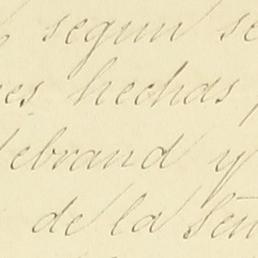 segun se
es hechas
ebrand y
de la Señ